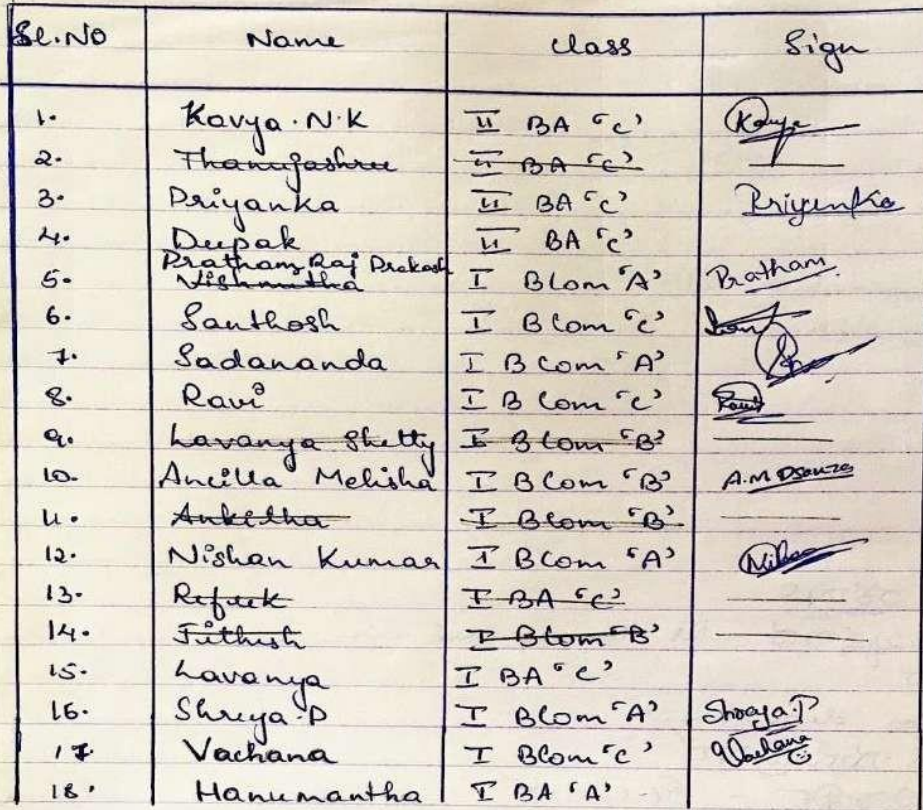 Sl.No Name Class Sign
1. Kavya.N.K II BA 'C' Kavya
2. Thanujashree II BA 'C'
3. Priyanka II BA 'C' Priyanka
4. Deepak II BA 'C'
Pratham Raj Prakash
5. Vishmitha I BCom 'A' Pratham
6. Santhosh I BCom 'C'
7. Sadananda I BCom 'A'
8. Ravi I BCom 'C' Ravi
9. Lavanya Shetty I BCom 'B'
10. Ancilla Melisha I BCom 'B' A.M Dsouza
11. Ankitha I BCom 'B'
12. Nishan Kumar I BCom 'A'
13. Refeek I BA 'C'
14. Jithesh I BCom 'B'
15. Lavanya I BA 'C'
16. Shreya.P I BCom 'A' Shreya.P
17. Vachana I BCom 'C' Vachana
18. Hanumantha I BA 'A'